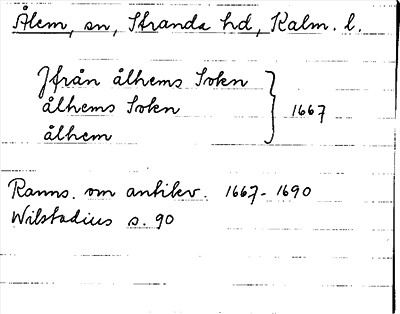 Ålem, sn, Stranda hd, Kalm. l.
Ifrån ålhems Sokn
ålhems Sokn
ålhem
1667
Ranns. om antikv. 1667-1690
Wilstadius s. 90